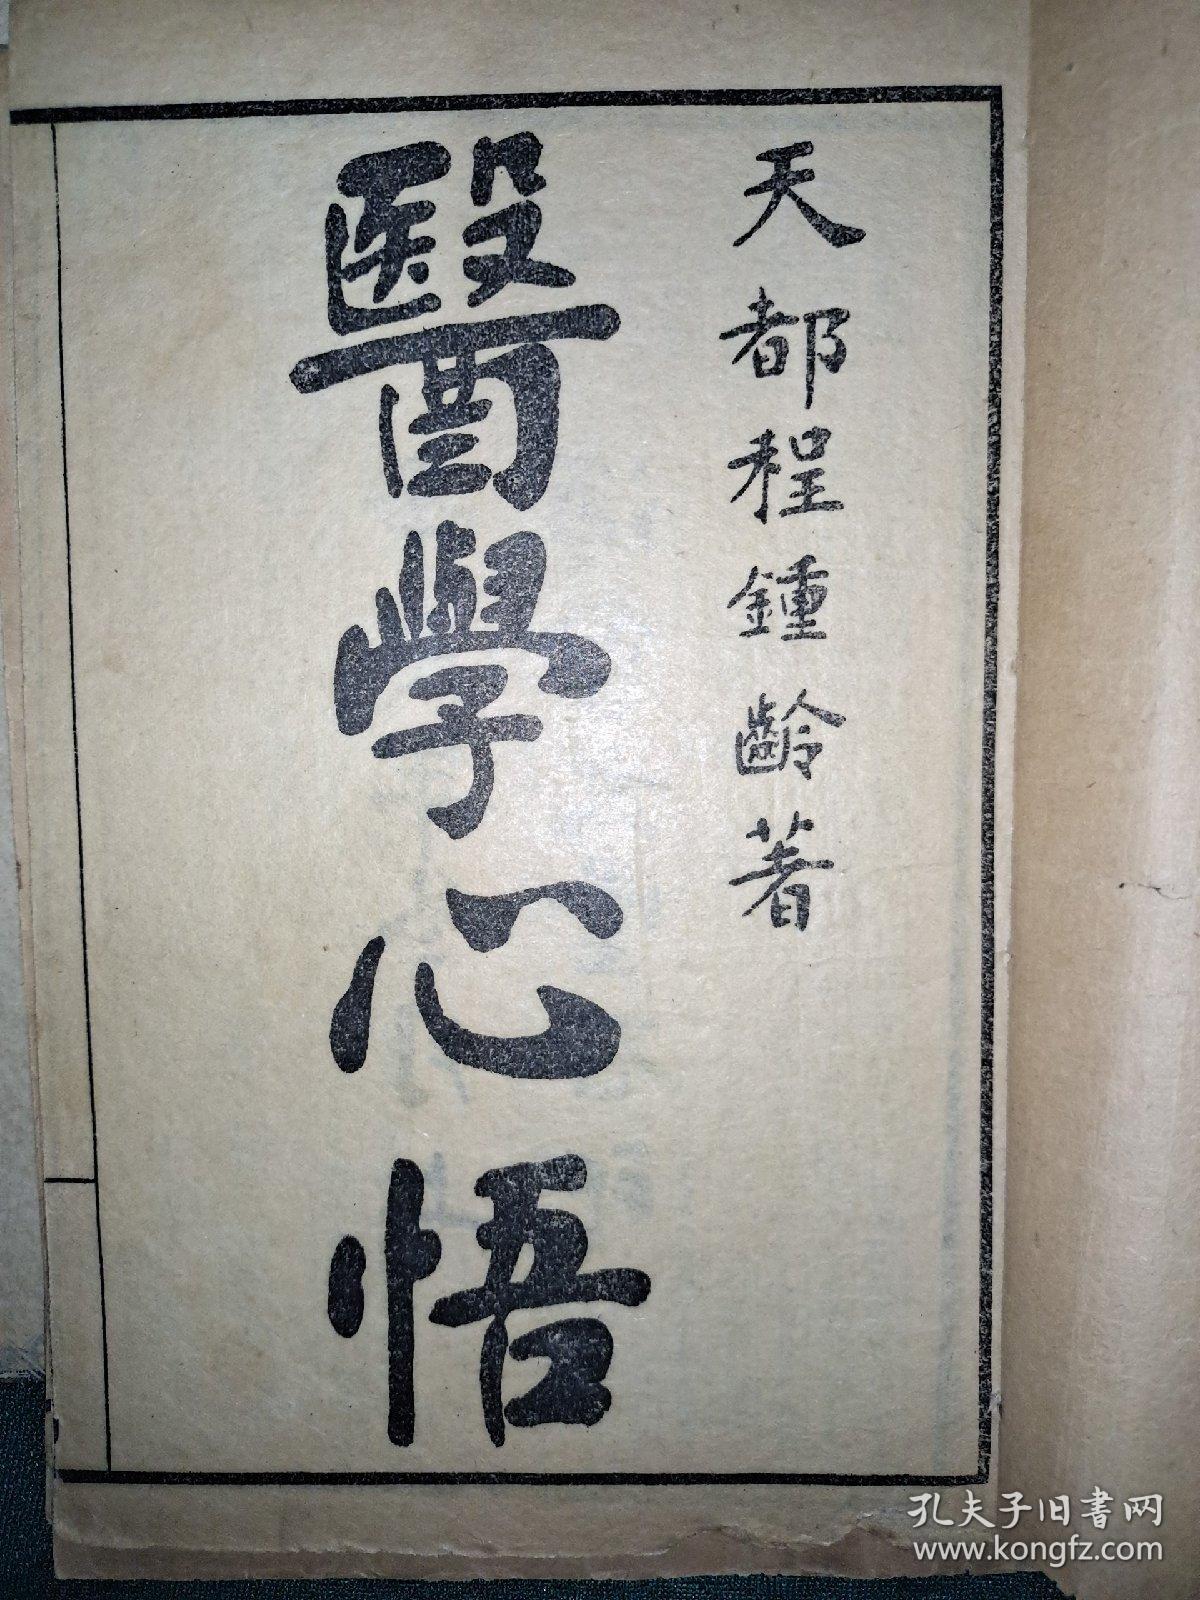 天都程鍾齡著
醫學心悟
孔夫子旧書网
www.kongfz.com